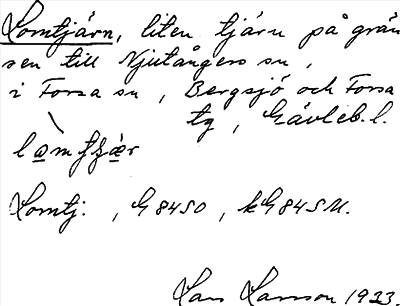 Lomtjärn, liten tjärn på grän
sen till Njutångers sn,
i Forsa sn, Bergsjö och Forsa
tg, Gävleb. l.
Lomtj: , G 84 SO, kG 84 SU.
Lars Larsson 1923.